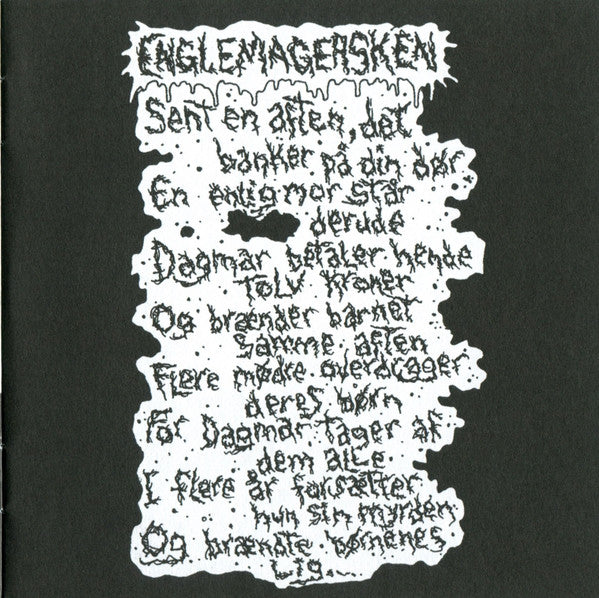 ENGLEMAGERSKEN
Sent en aften, det
banker på din dør
En enlig mor står
derude
Dagmar betaler hende
Tolv kroner
Og brænder barnet
samme aften
Flere mødre overdrager
deres børn
For Dagmar Tager af
dem alle.
I flere år forsætter
hun sin myrden
Og brændte børnenes
Lig...